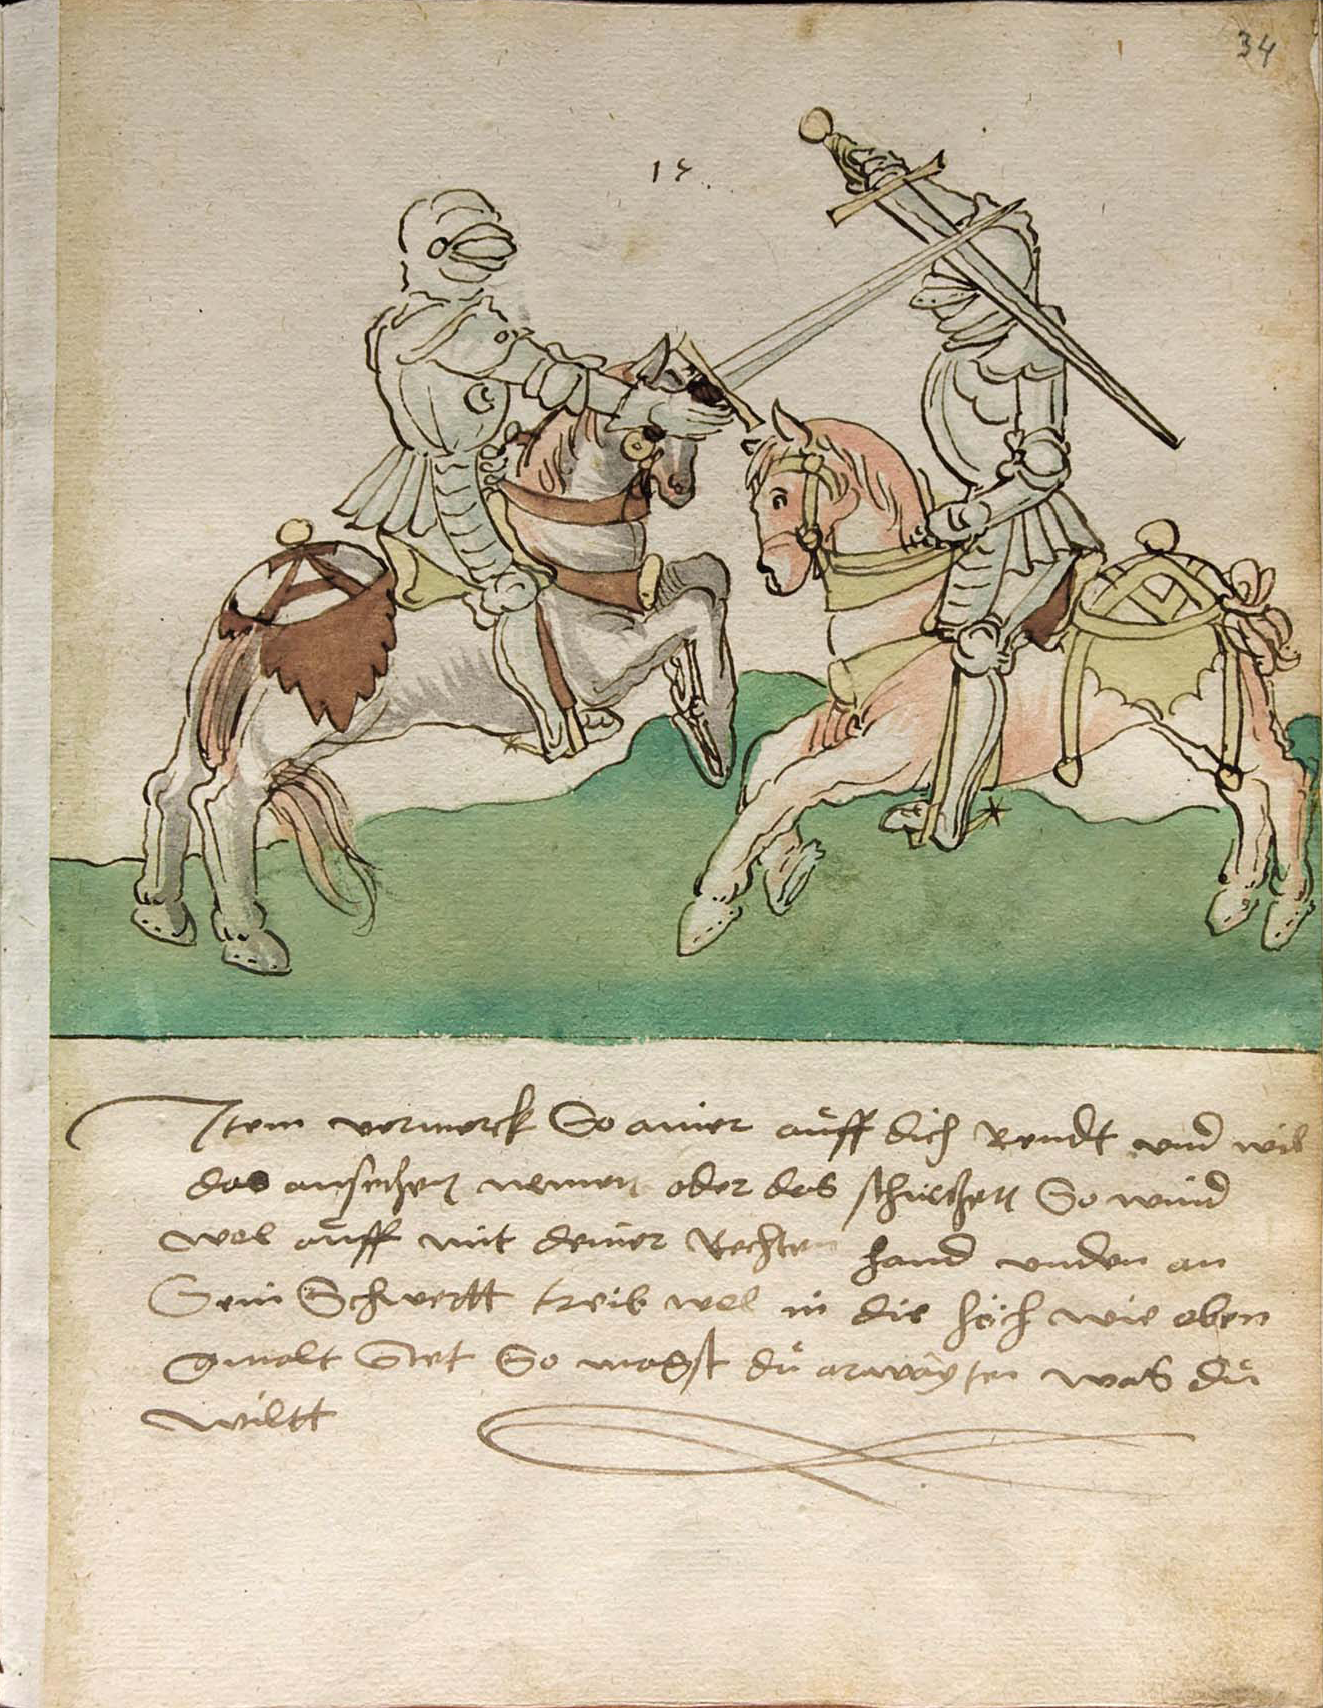 34
15.
Item vermerck So ainer aůff dich Rendt vnd wil
das ansechen nemen oder das stuchen So wind
wol aůff mit deiner Rechten hand vnden an
Sein Schwertt treib wol in die höch wie oben
gmalt Stet So magst dů arwayten was dů
wiltt